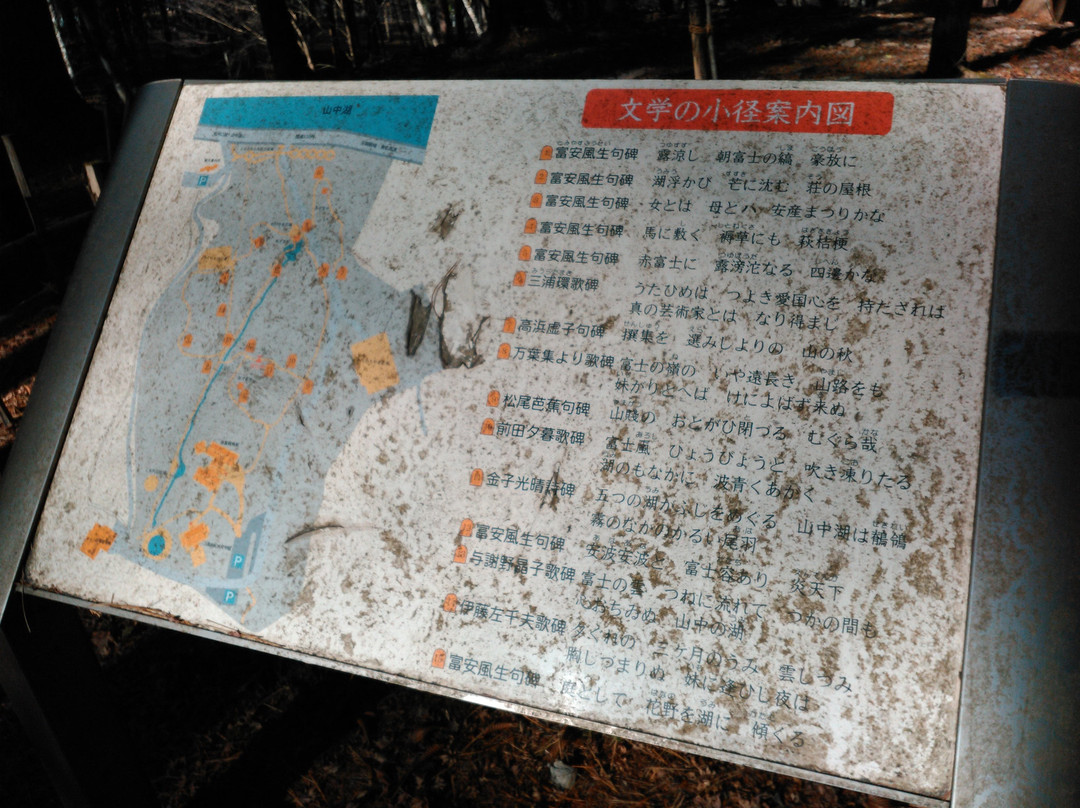 文学の小径案内図
山中湖
富安風生句碑 露涼し 朝富士の縞 豪放に
富安風生句碑 湖浮かび 芒に沈む 荘の屋根
富安風生句碑 女とは 母とハ 安産まつりかな
富安風生句碑 馬に敷く 褥草にも 萩桔梗
富安風生句碑 赤富士に 露滂沱なる 四邊かな
三浦環歌碑 うたひめは つよき愛国心を 持たざれは
真の芸術家とは なり得まし
高浜虚子句碑 撰集を 選みしよりの 山の秋
万葉集より歌碑 富士の嶺の いや遠長き 山路をも
妹がりとへば けによばず来ぬ
松尾芭蕉句碑 山賤の おとがひ閉づる むぐら哉
前田夕暮歌碑 富士風 ひょうびようと 吹き凍りたる
湖のもなかに 波青くあかく
金子光晴詩碑 五つの湖が ふじをめぐる 山中湖は鶺鴒
霧のなかのかるい尾羽
富安風生句碑 安波安波と 富士容あり 炎天下
与謝野晶子歌碑 富士の雲 つねに流れて つかの間も
心おちゐぬ 山中の湖
伊藤左千夫歌碑 三ケ月のうみ 雲しろみ
胸しづまりぬ 妹に逢ひし夜は
富安風生句碑 庭として 花野を湖に 傾くる
P
P
P